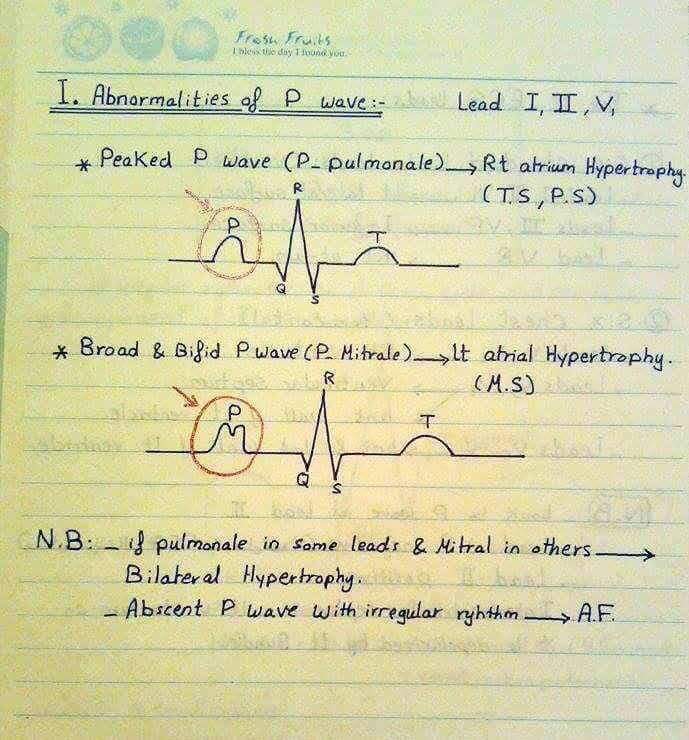 Fresh Fruits
I bless the day I found you.
I. Abnormalities of P wave:- Lead I, II, V,
* Peaked P wave (P_ pulmonale) → Rt atrium Hypertrophy.
(T.S, P.S)
R
P
T
Q
S
* Broad & Bifid P wave (P_ Mitrale) → Lt atrial Hypertrophy.
(M.S)
R
P
T
Q
S
N.B: - if pulmonale in some leads & Mitral in others →
Bilateral Hypertrophy.
- Abscent P wave with irregular ryhthm → A.F.